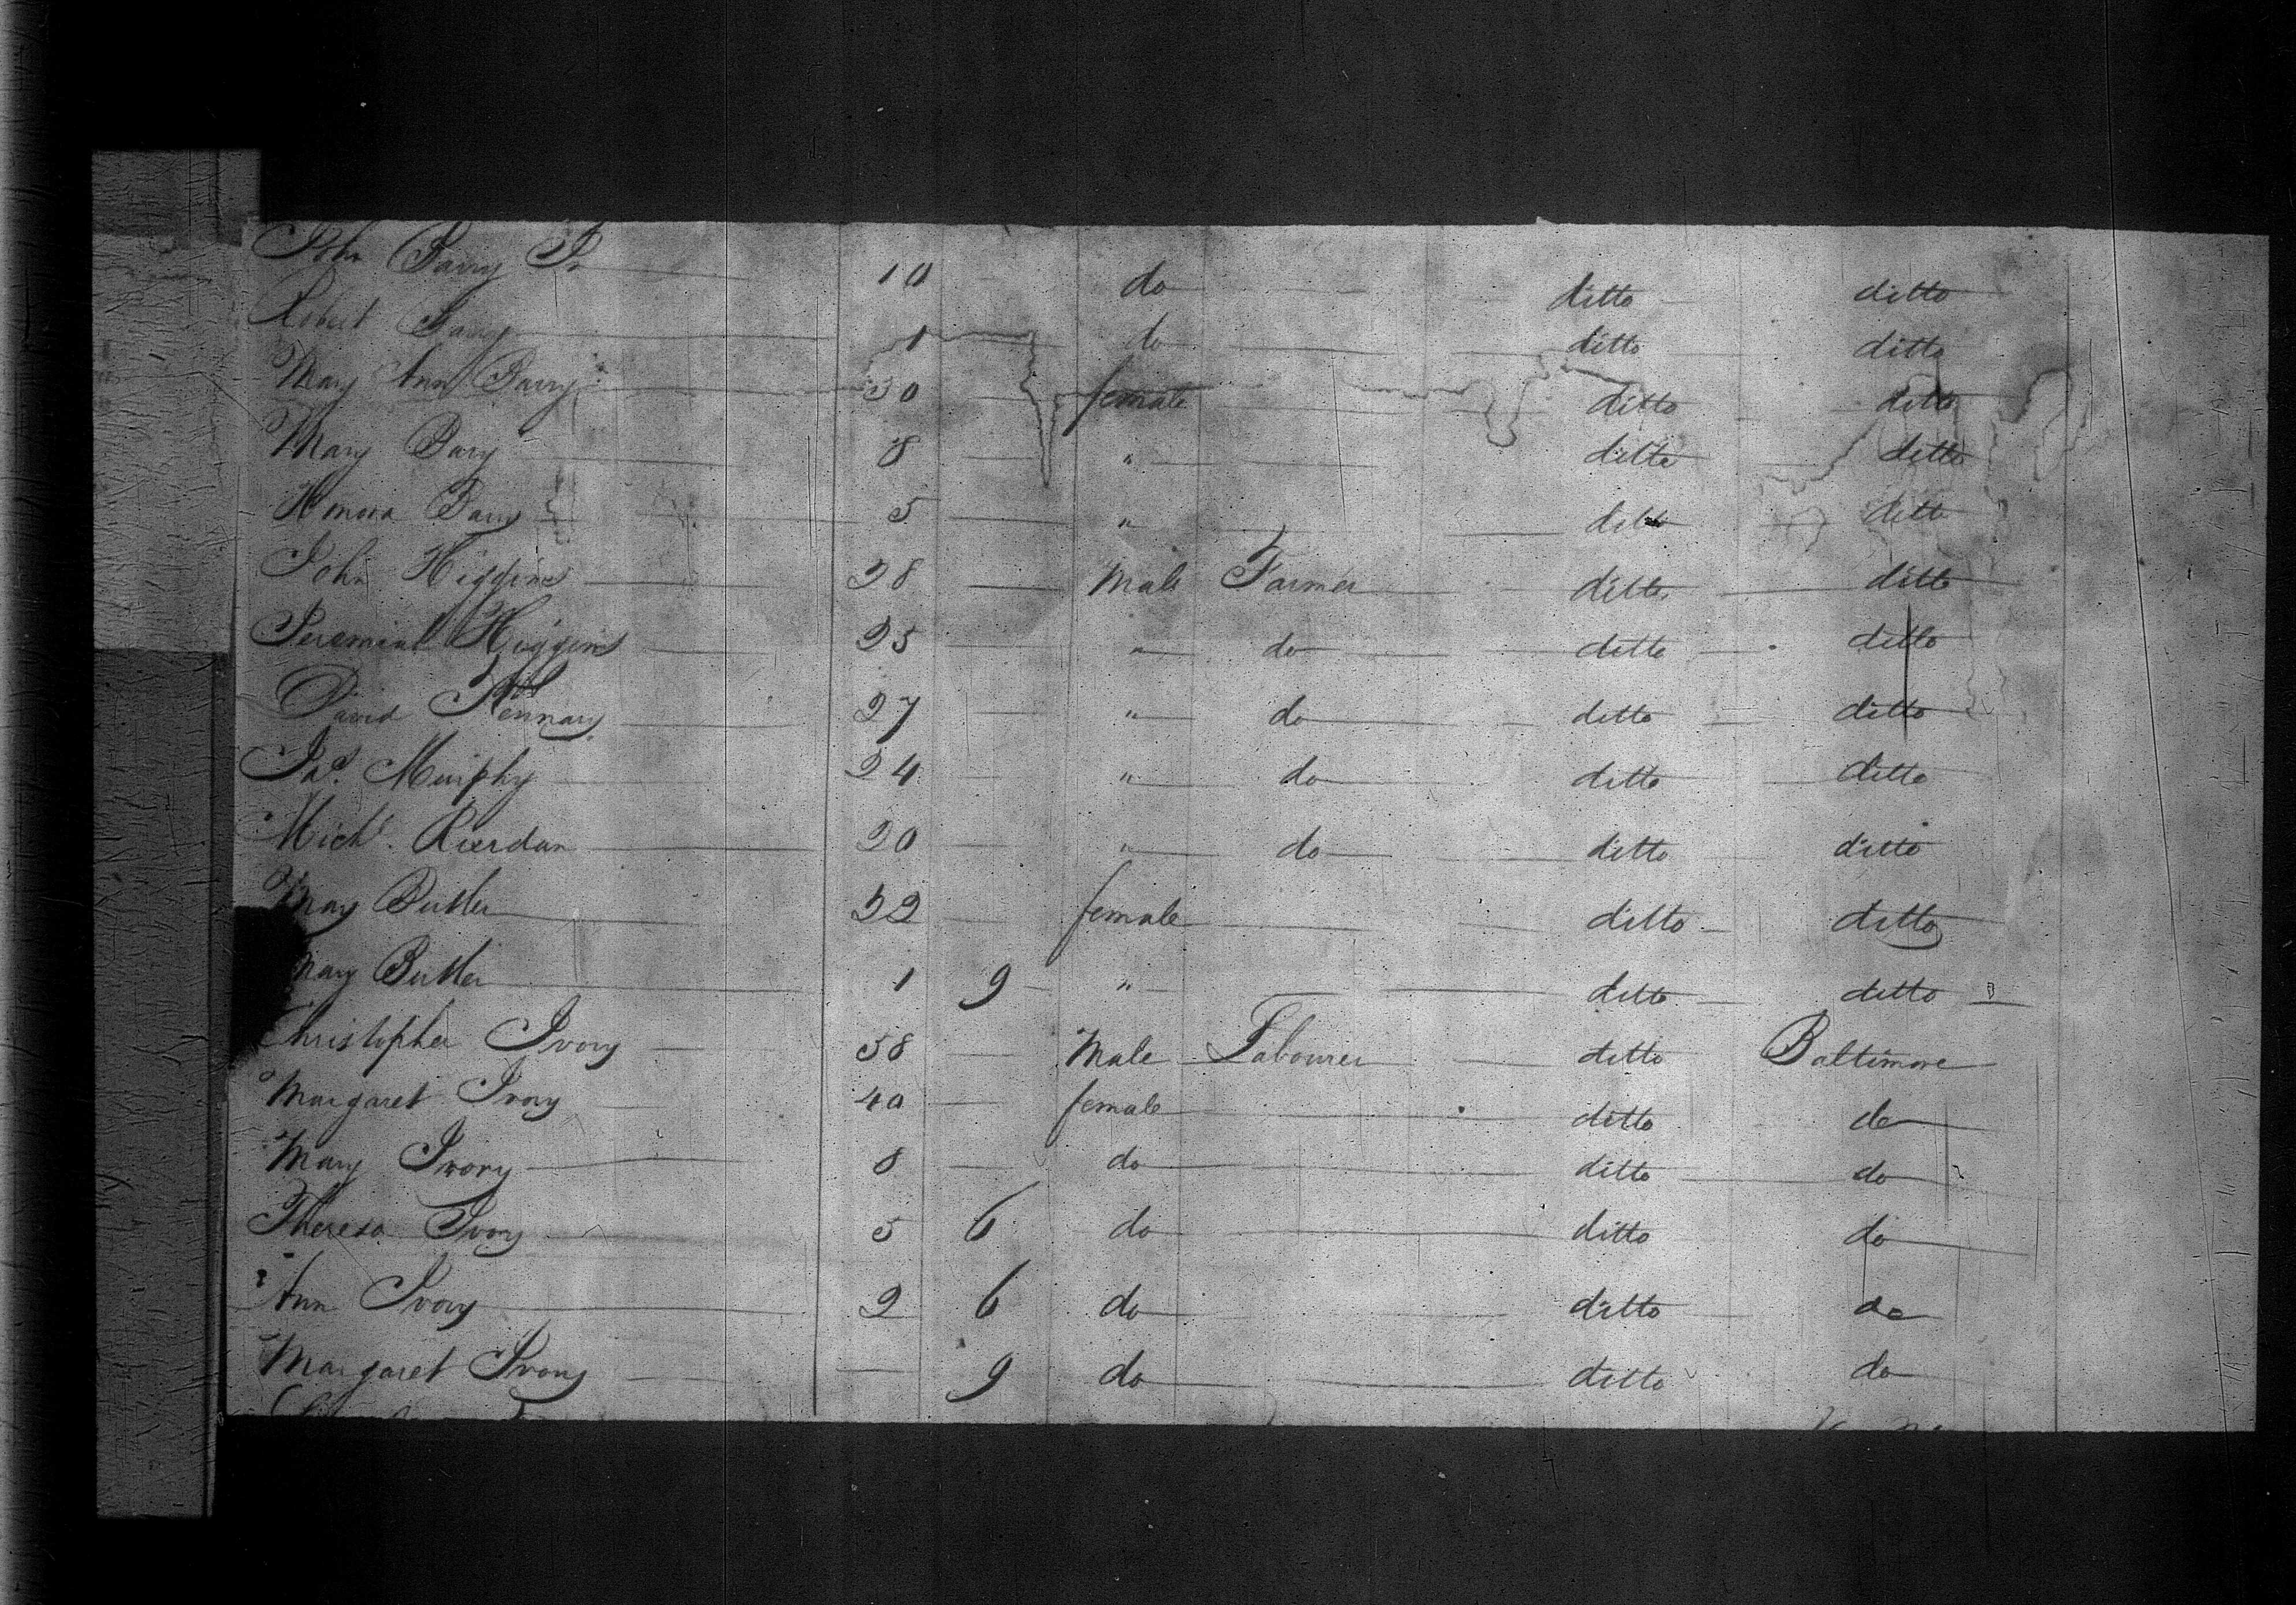 John Barry Jr 10 do ditto ditto
Robert Barry 1 do ditto ditto
Mary Ann Barry 30 female ditto ditto
Mary Barry 8 " ditto ditto
Honora Barry 5 " ditto ditto
John Higgins 28 Male Farmer ditto ditto
Jeremiah Higgins 25 " do ditto ditto
David Kennary 27 " do ditto ditto
Jas. Murphy 24 " do ditto ditto
Michl. Rierdan 20 " do ditto ditto
Mary Butler 22 female ditto ditto
Mary Butler 1 9 " ditto ditto
Christopher Ivory 38 Male Labourer ditto Baltimore
Margaret Ivory 40 female ditto do
Mary Ivory 8 do ditto do
Theresa Ivory 5 6 do ditto do
Ann Ivory 2 6 do ditto do
Margaret Ivory 9 do ditto do